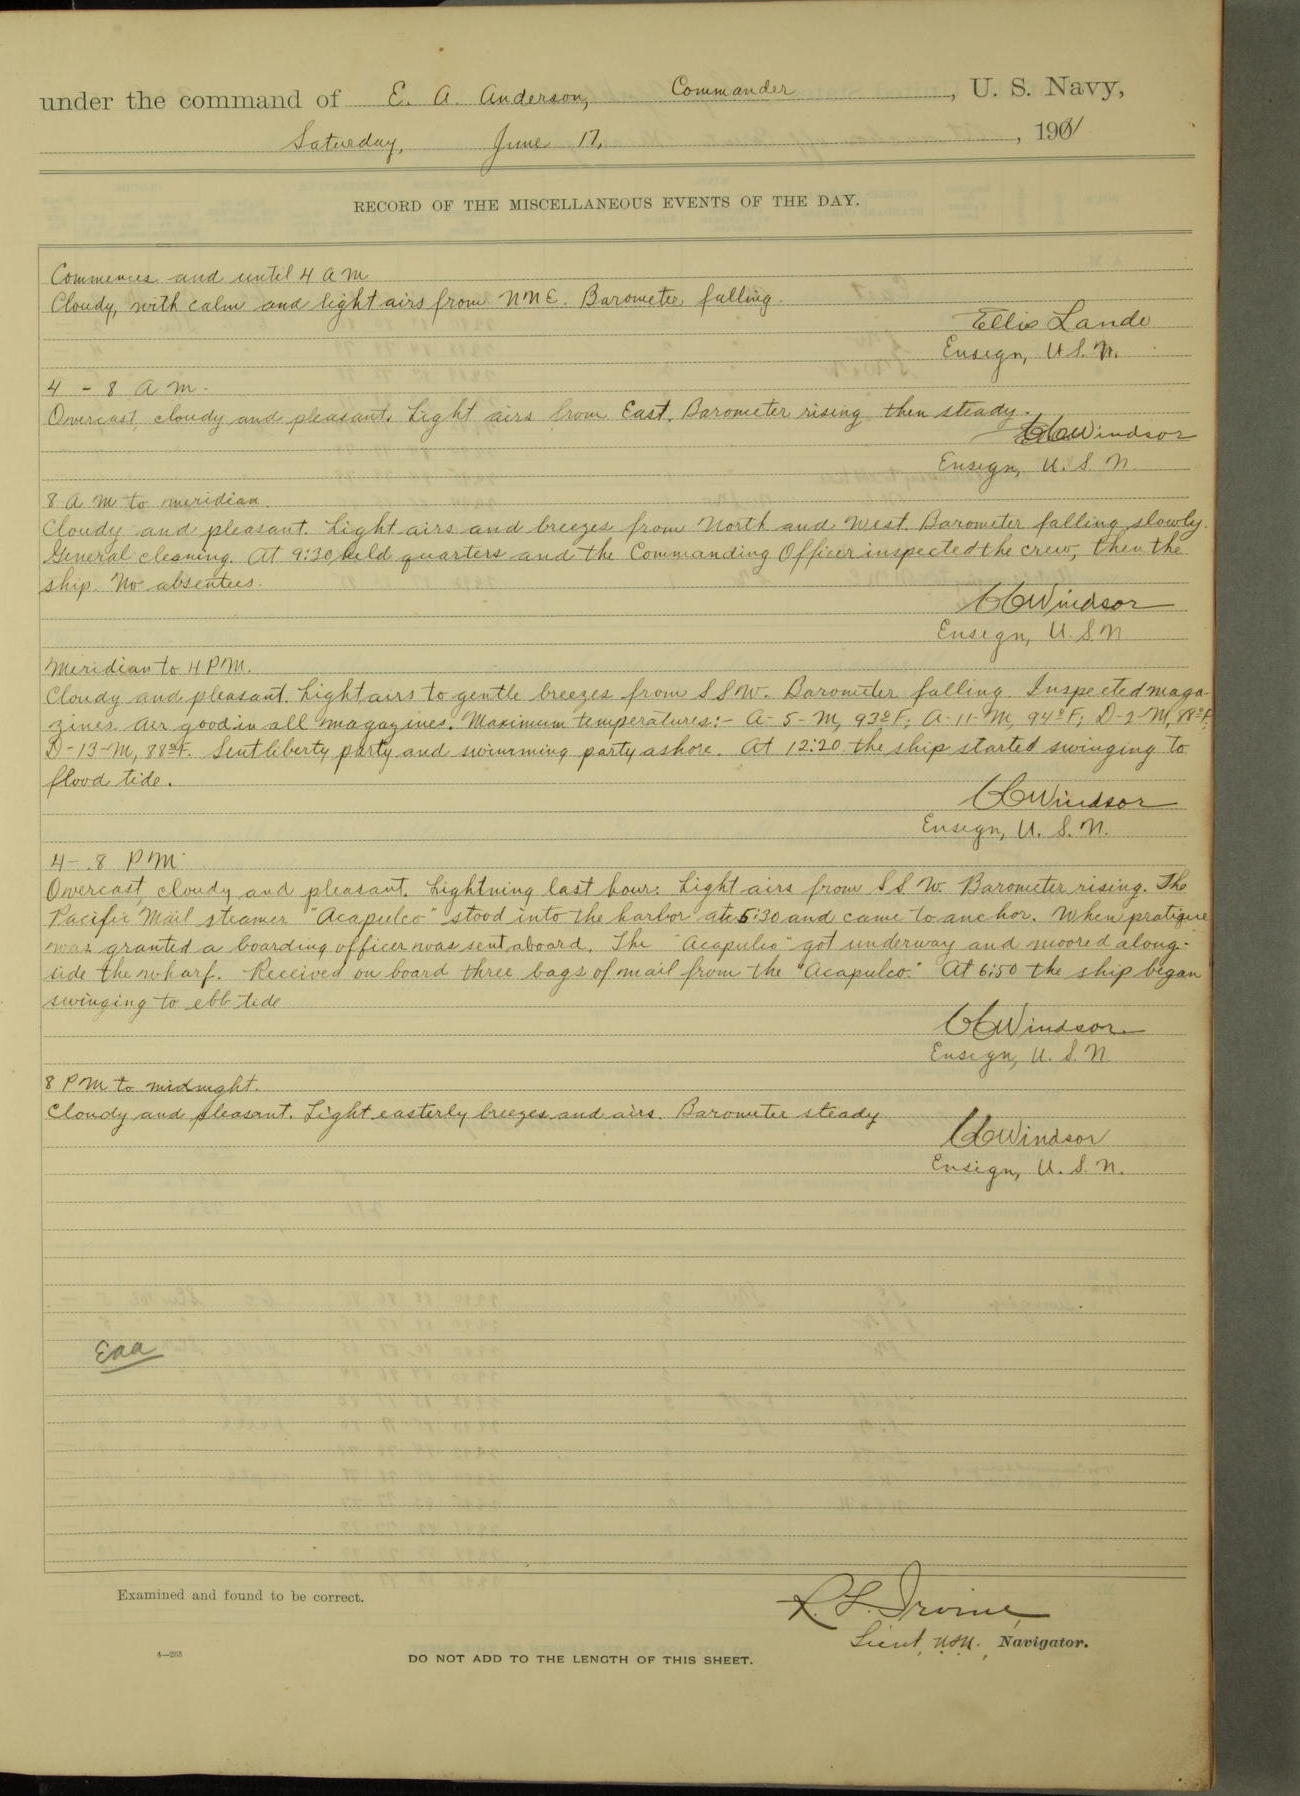 under the command of E. A. Anderson, Commander, U. S. Navy,
Saturday, June 17, 1911
RECORD OF THE MISCELLANEOUS EVENTS OF THE DAY.
Commences and until 4 A M
Cloudy, with calm and light airs from NNE. Barometer falling.
Ellis Lando
Ensign, U.S.N.
4 - 8 A M.
Overcast, cloudy and pleasant. Light airs from East. Barometer rising then steady.
CC Windsor
Ensign, U. S N.
8 A M to meridian.
Cloudy and pleasant. Light airs and breezes from North and West. Barometer falling slowly.
General cleaning. At 9:30 held quarters and the Commanding Officer inspected the crew, then the
ship. No absentees.
CC Windsor
Ensign, U. S. N
Meridian to 4 P.M.
Cloudy and pleasant. Light airs to gentle breezes from S S W. Barometer falling. Inspected maga-
zines. Air good in all magazines. Maximum temperatures:- A-5-M, 93°F; A-11-M, 94°F; D-2-M, 88°F;
D-13-M, 88°F. Sent liberty party and swimming party ashore. At 12:20 the ship started swinging to
flood tide.
CC Windsor
Ensign, U. S. N.
4 - 8 P M
Overcast, cloudy and pleasant. Lightning last hour. Light airs from S S. W. Barometer rising. The
Pacific Mail steamer "Acapulco" stood into the harbor at 5:30 and came to anchor. When pratique
was granted a boarding officer was sent aboard. The "Acapulco" got underway and moored along-
side the wharf. Received on board three bags of mail from the "Acapulco." At 6:50 the ship began
swinging to ebb tide
CC Windsor
Ensign, U. S. N
8 P M to midnight.
Cloudy and pleasant. Light easterly breezes and airs. Barometer steady
CC Windsor
Ensign, U. S. N.
EAA
Examined and found to be correct.
R. L. Irvine,
Lieut, U.S.N., Navigator.
DO NOT ADD TO THE LENGTH OF THIS SHEET.